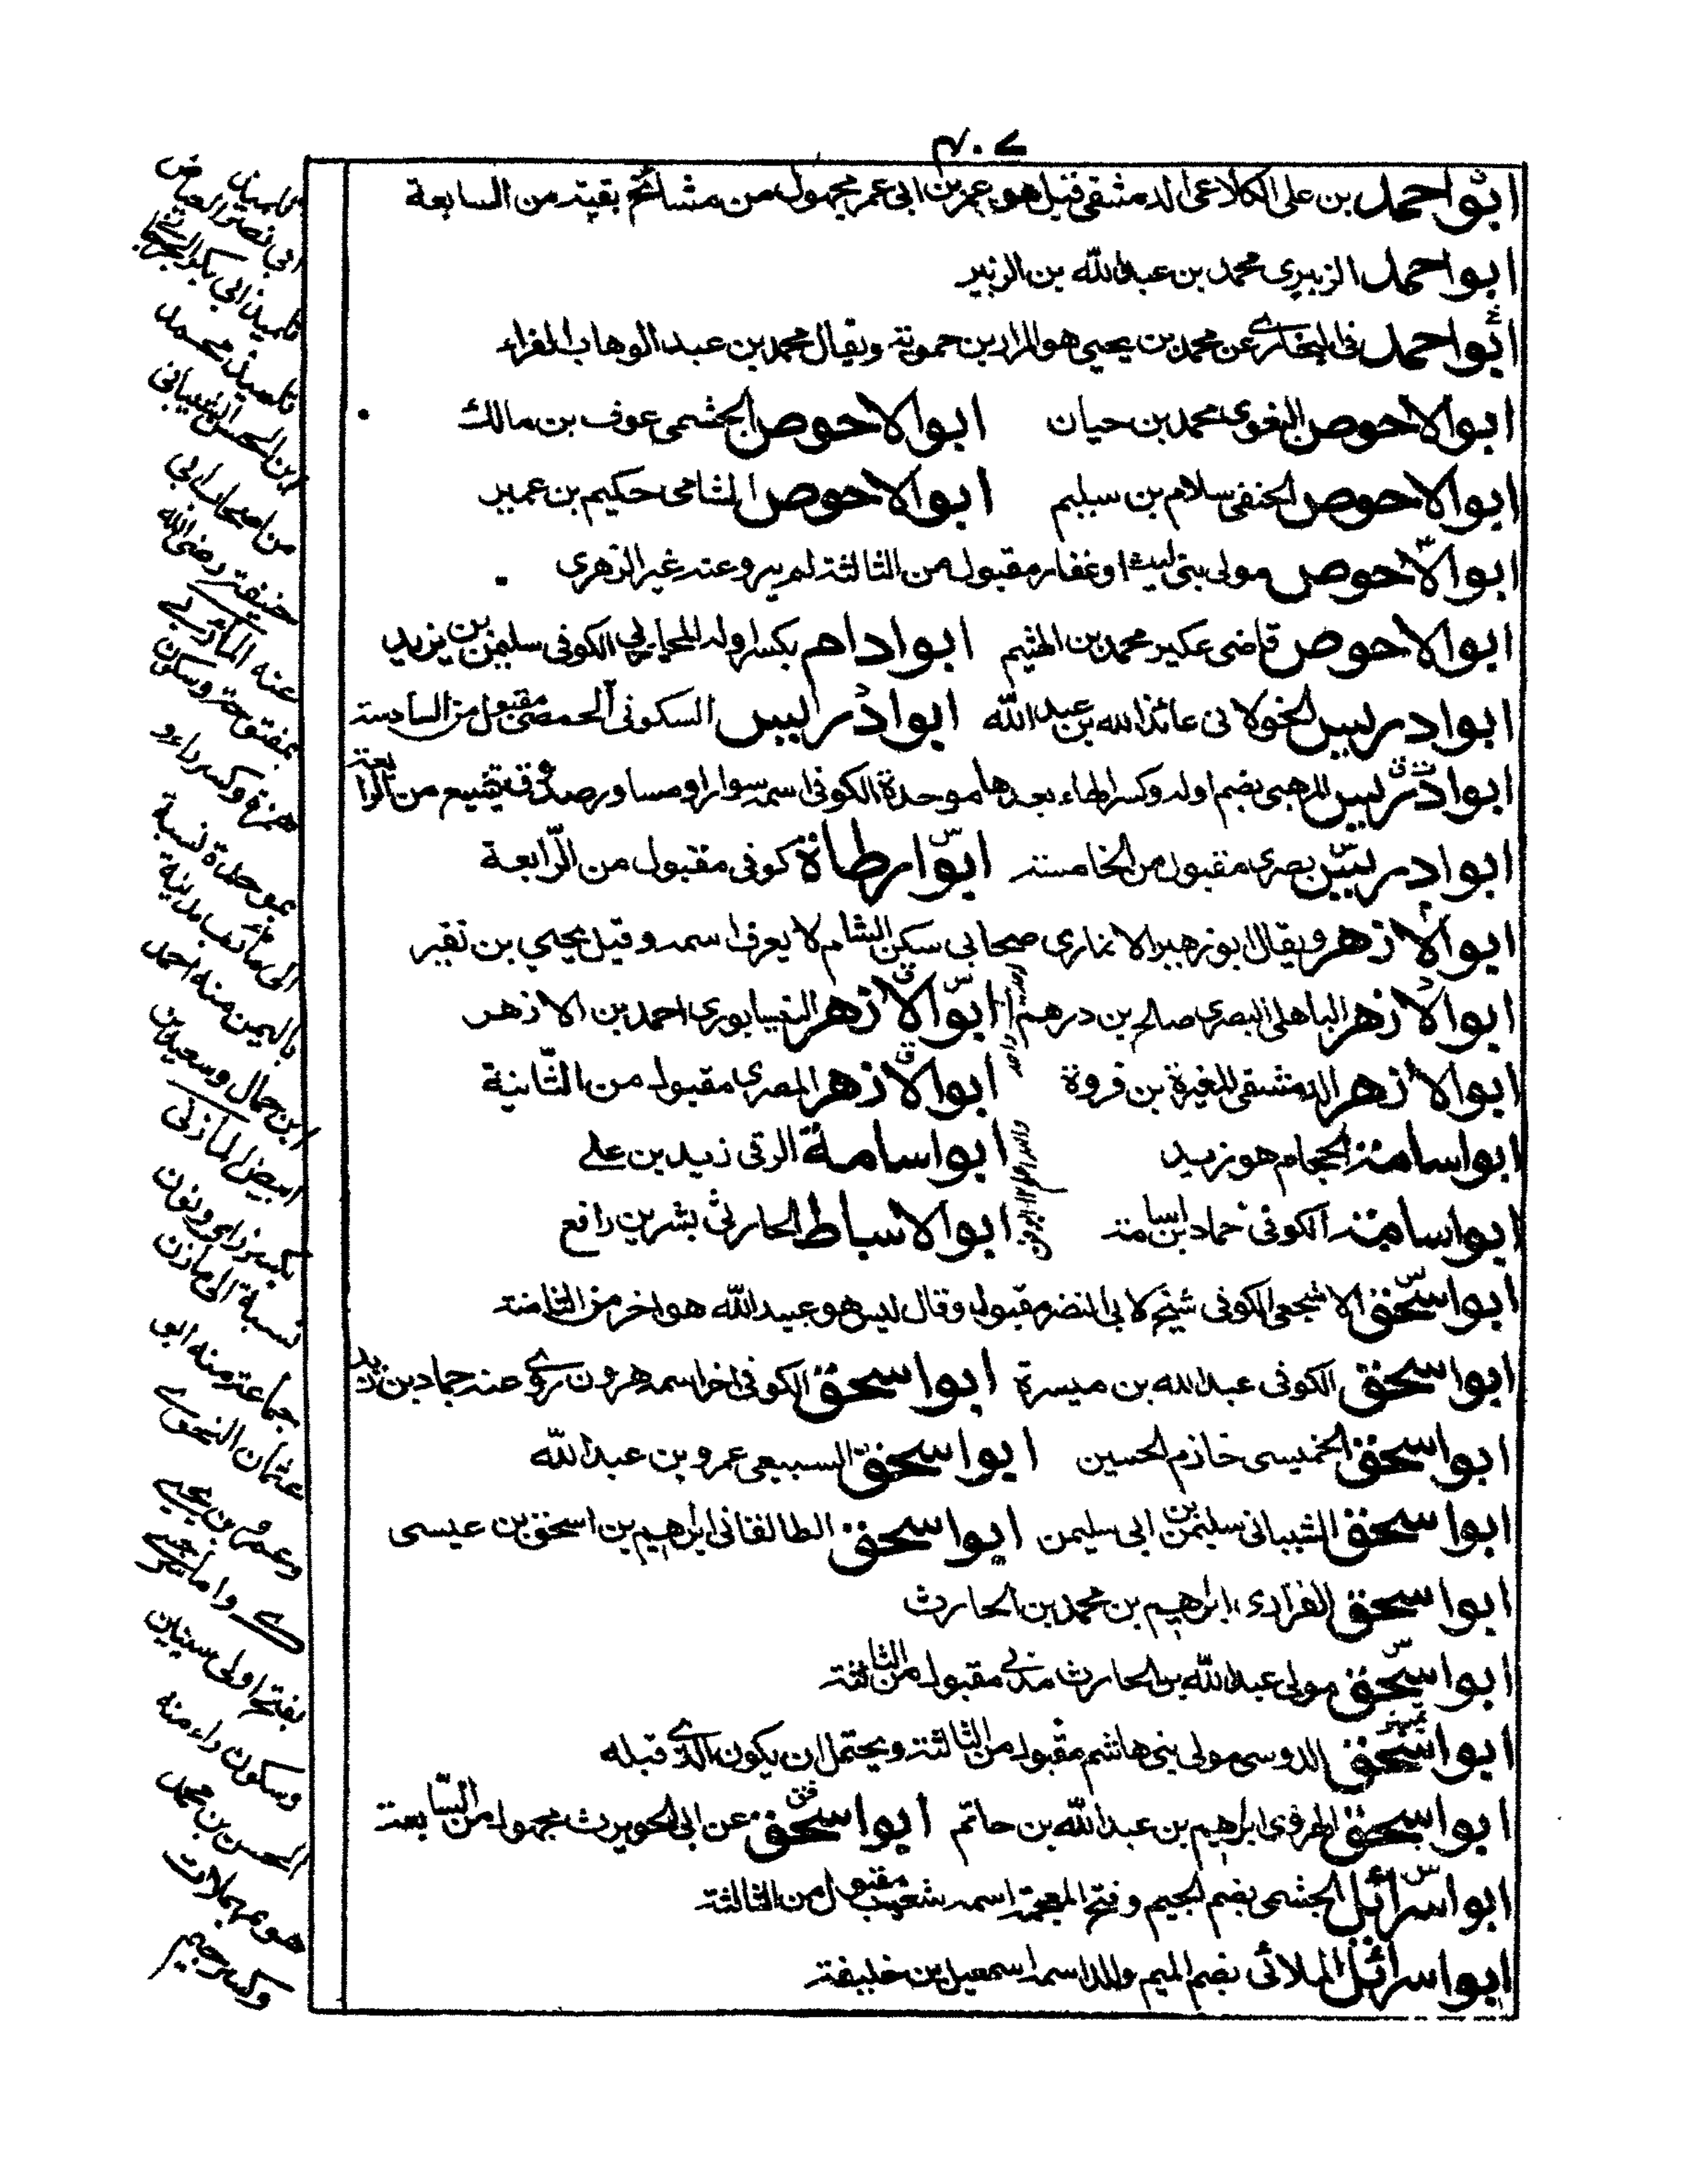 ٤٠٧
ابو احمد بن على الكلاعى الدمشقى قيل هو عمر بن ابى عمر مجهول من مشائخ بقية من السابعة
ابو احمد الزبيرى محمد بن عبدالله بن الزبير
ابو احمد فى البخارى عن محمد بن يحيى هو المرار بن حموية ويقال محمد بن عبد الوهاب الفراء
ابو الاحوص البغوى محمد بن حيان ابو الاحوص الجشمى عوف بن مالك
ابو الاحوص الحنفى سلام بن سليم ابو الاحوص الشامى حكيم بن عمير
ابو الاحوص مولى بنى ليث او غفار مقبول من الثالثة لم يرو عنه غير الزهرى
ابو الاحوص قاضى عكبر محمد بن الهثيم ابو ادام بكسر اوله المحاربى الكوفى سليمن بن يزيد
ابو ادريس الخولانى عائذ الله بن عبد الله ابو ادريس السكونى الحمصى مقبول من السادسة
ابو ادريس المرهبى بضم اوله وكسر الهاء بعدها موحدة الكوفى اسمه سوار او مساور صدوق يتشيع من الرابعة
ابو ادريس بصرى مقبول من الخامسة ابو ارطاة كوفى مقبول من الرابعة
ابو الازهر ويقال ابو زهير الانمارى صحابى سكن الشام لا يعرف اسمه وقيل يحيى بن نفير
ابو الازهر الباهلى البصرى صالح بن درهم ابو الازهر النيسابورى احمد بن الازهر
ابو الازهر الدمشقى المغيرة بن فروة ابو الازهر المصرى مقبول من الثانية
ابو اسامة الحجام هو زيد ابو اسامة الرقى زيد بن على
ابو اسامة الكوفى حماد بن اسامة ابو الاسباط الحارثى بشر بن رافع
ابو اسحق الاشجعى الكوفى شيخ لابى النضر مقبول وقال ليس هو عبيد الله هو اخر من الثامنة
ابو اسحق الكوفى عبد الله بن ميسرة ابو اسحق الكوفى اخر اسمه هرون روى عنه حماد بن زيد
ابو اسحق الخميسى خازم الحسين ابو اسحق السبيعى عمرو بن عبد الله
ابو اسحق الشيبانى سليمن بن ابى سليمن ابو اسحق الطالقانى ابراهيم بن اسحق بن عيسى
ابو اسحق الفزارى ابراهيم بن محمد بن الحارث
ابو اسحق مولى عبدالله بن الحارث مدنى مقبول من الثالثة
ابو اسحق الدوسى مولى بنى هاشم مقبول من الثالثة ويحتمل ان يكون الذى قبله
ابو اسحق الهروى ابراهيم بن عبد الله بن حاتم ابو اسحق عن ابى الحويرث مجهول من السابعة
ابو اسرائل الجشمى بضم الجيم وفتح المعجمة اسمه شعيب مقبول من الثالثة
ابو اسرائل الملائى بضم الميم والمد اسمه اسمعيل بن خليفة
تلميذ
ابى نصر العياض
تلميذ ابى بكر الجرجانى
تلميذ محمد
ابن الحسن الشيبانى
من اصحاب ابى
حنيفة رضى الله
عنه المأربى
بمفتوحة وسكون
همزة وكسر راء و
بموحدة نسبة
الى مأرب مدينة
باليمن منه احمد
ابن حمال وسعيد بن
ابيض المازنى
بكسر زاى ونون
نسبة الى مازن
جماعة منه ابى
عثمان النحوى
وعمرو بن يحيى
بفتح اولى سينين
وسكون راء منه
الحسن بن محمد
هو بمهملات
وكسر جيم